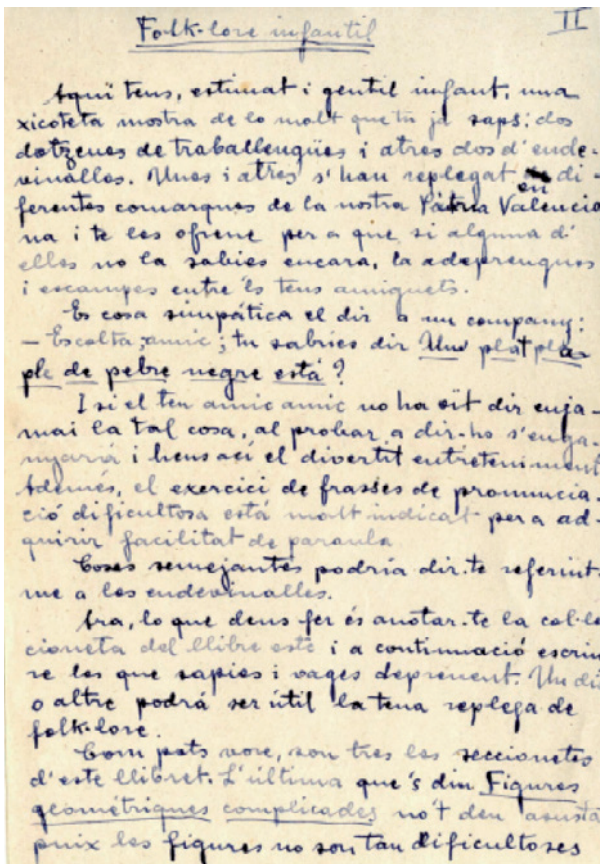 Folk-lore infantil
II
Aquí tens, estimat i gentil infant, una
xicoteta mostra de lo molt que tu ja saps: dos
dotzenes de traballengües i atres dos d'ende-
vinalles. Unes i atres s'han replegat en di-
ferentes comarques de la nostra Pátria Valencia
na i te les ofrene per a que, si alguna d'
elles no la sabies encara, la adeprengues
i escampes entre 'ls teus amiguets.
Es cosa simpática el dir a un company:
— Escolta, amic; tu sabries dir Un plat pla
ple de pebre negre está?
I si el teu amic amic no ha oït dir enja-
mai la tal cosa, al probar a dir-ho s'enga-
nyará i hens ací el divertit entreteniment
Ademés, el exercici de frasses de pronuncia-
ció dificultosa está molt indicat per a ad-
quirir facilitat de paraula
Coses semejantes podría dir-te referint-
me a les endevinalles.
Ara, lo que deus fer és anotar-te la col·le
cioneta del llibre este i a continuació escriu
re les que sapies i vages deprenent. Un dia
o altre podrá ser útil la teua replega de
folk-lore.
Com pots vore, son tres les seccionetes
d'este llibret. L'última que 's diu Figures
geométriques complicades no't deu asustar
puix les figures no son tan dificultoses